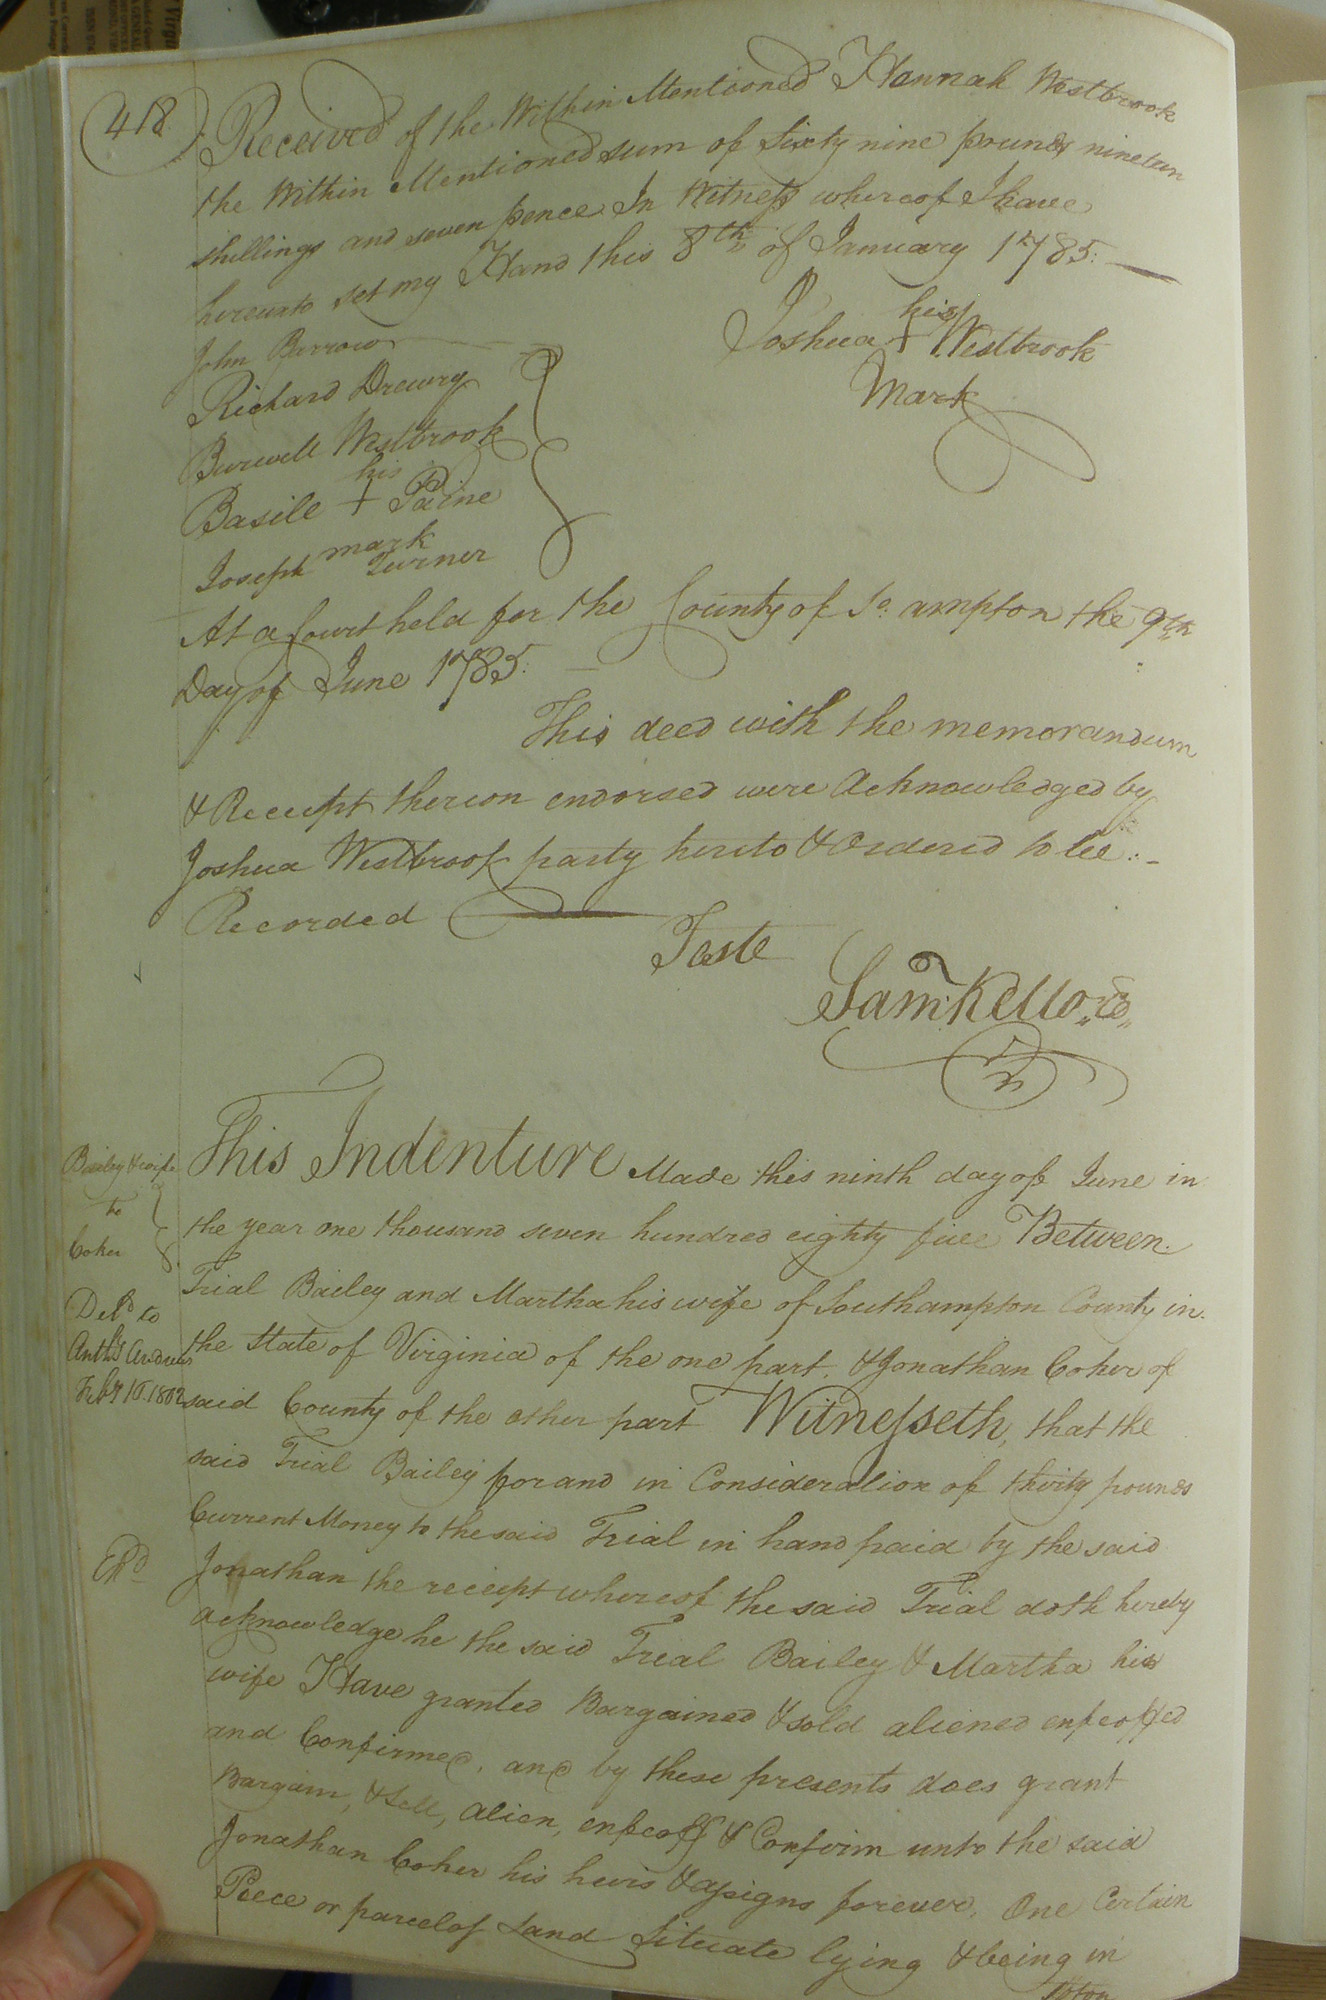 418
Received of the Within Mentioned Hannah Westbrook
the Within Mentioned sum of Sixty nine pounds nineteen
shillings and seven pence In Witness whereof I have
hereunto set my Hand this 8th of January 1785.
John Barrow
Richard Drewry
Burwell Westbrook
his
Basile + Paine
mark
Joseph Turner
his
Joshua + Westbrook
Mark
At a Court held for the County of So. ampton the 9th
Day of June 1785.
This deed with the memorandum
& Receipt thereon endorsed were Acknowledged by
Joshua Westbrook party hereto & Ordered to be
Recorded
Teste
Sam: Kello
Bailey & wife
to
Coker
Deld to
Andrews
Feby 10. 1802
Exd
This Indenture Made this ninth day of June in
the year one thousand seven hundred eighty five Between
Trial Bailey and Martha his wife of Southampton County in
the State of Virginia of the one part. & Jonathan Coker of
said County of the other part Witnesseth, that the
said Trial Bailey for and in Consideration of thirty pounds
Current Money to the said Trial in hand paid by the said
Jonathan the receipt whereof the said Trial doth hereby
acknowledge he the said Trial Bailey & Martha his
wife Have granted Bargained & sold aliened enfeoffed
and Confirmed, and by these presents does grant
Bargain, & Sell, alien, enfeoff & Confirm unto the said
Jonathan Coker his heirs & assigns forever, One Certain
Piece or parcel of Land Situate lying & being in